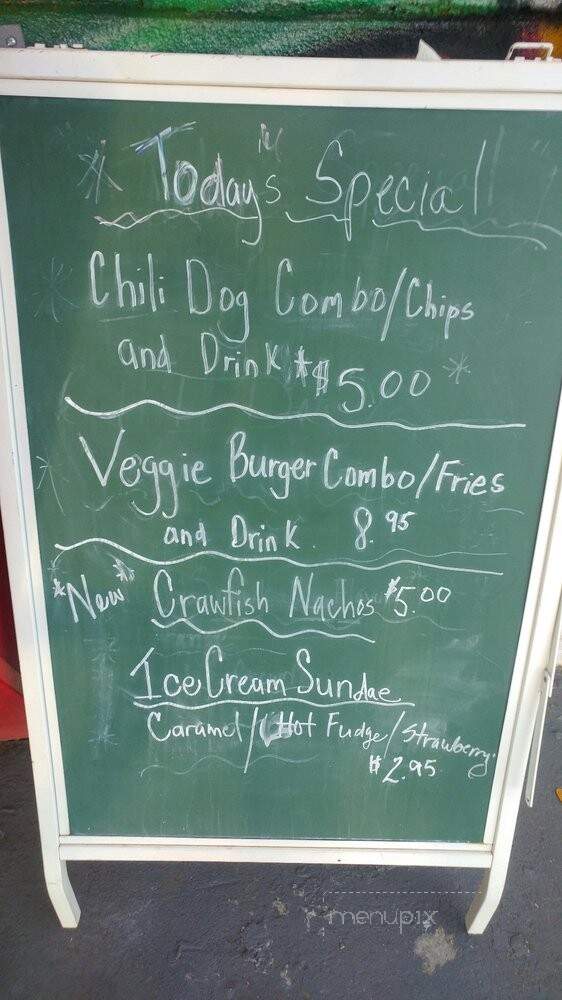 Today's Special
Chili Dog Combo/Chips
and Drink $5.00
Veggie Burger Combo/Fries
and Drink. 8.95
*New* Crawfish Nachos $5.00
Ice Cream Sundae
Caramel/Hot Fudge/Strawberry
$2.95
menupix